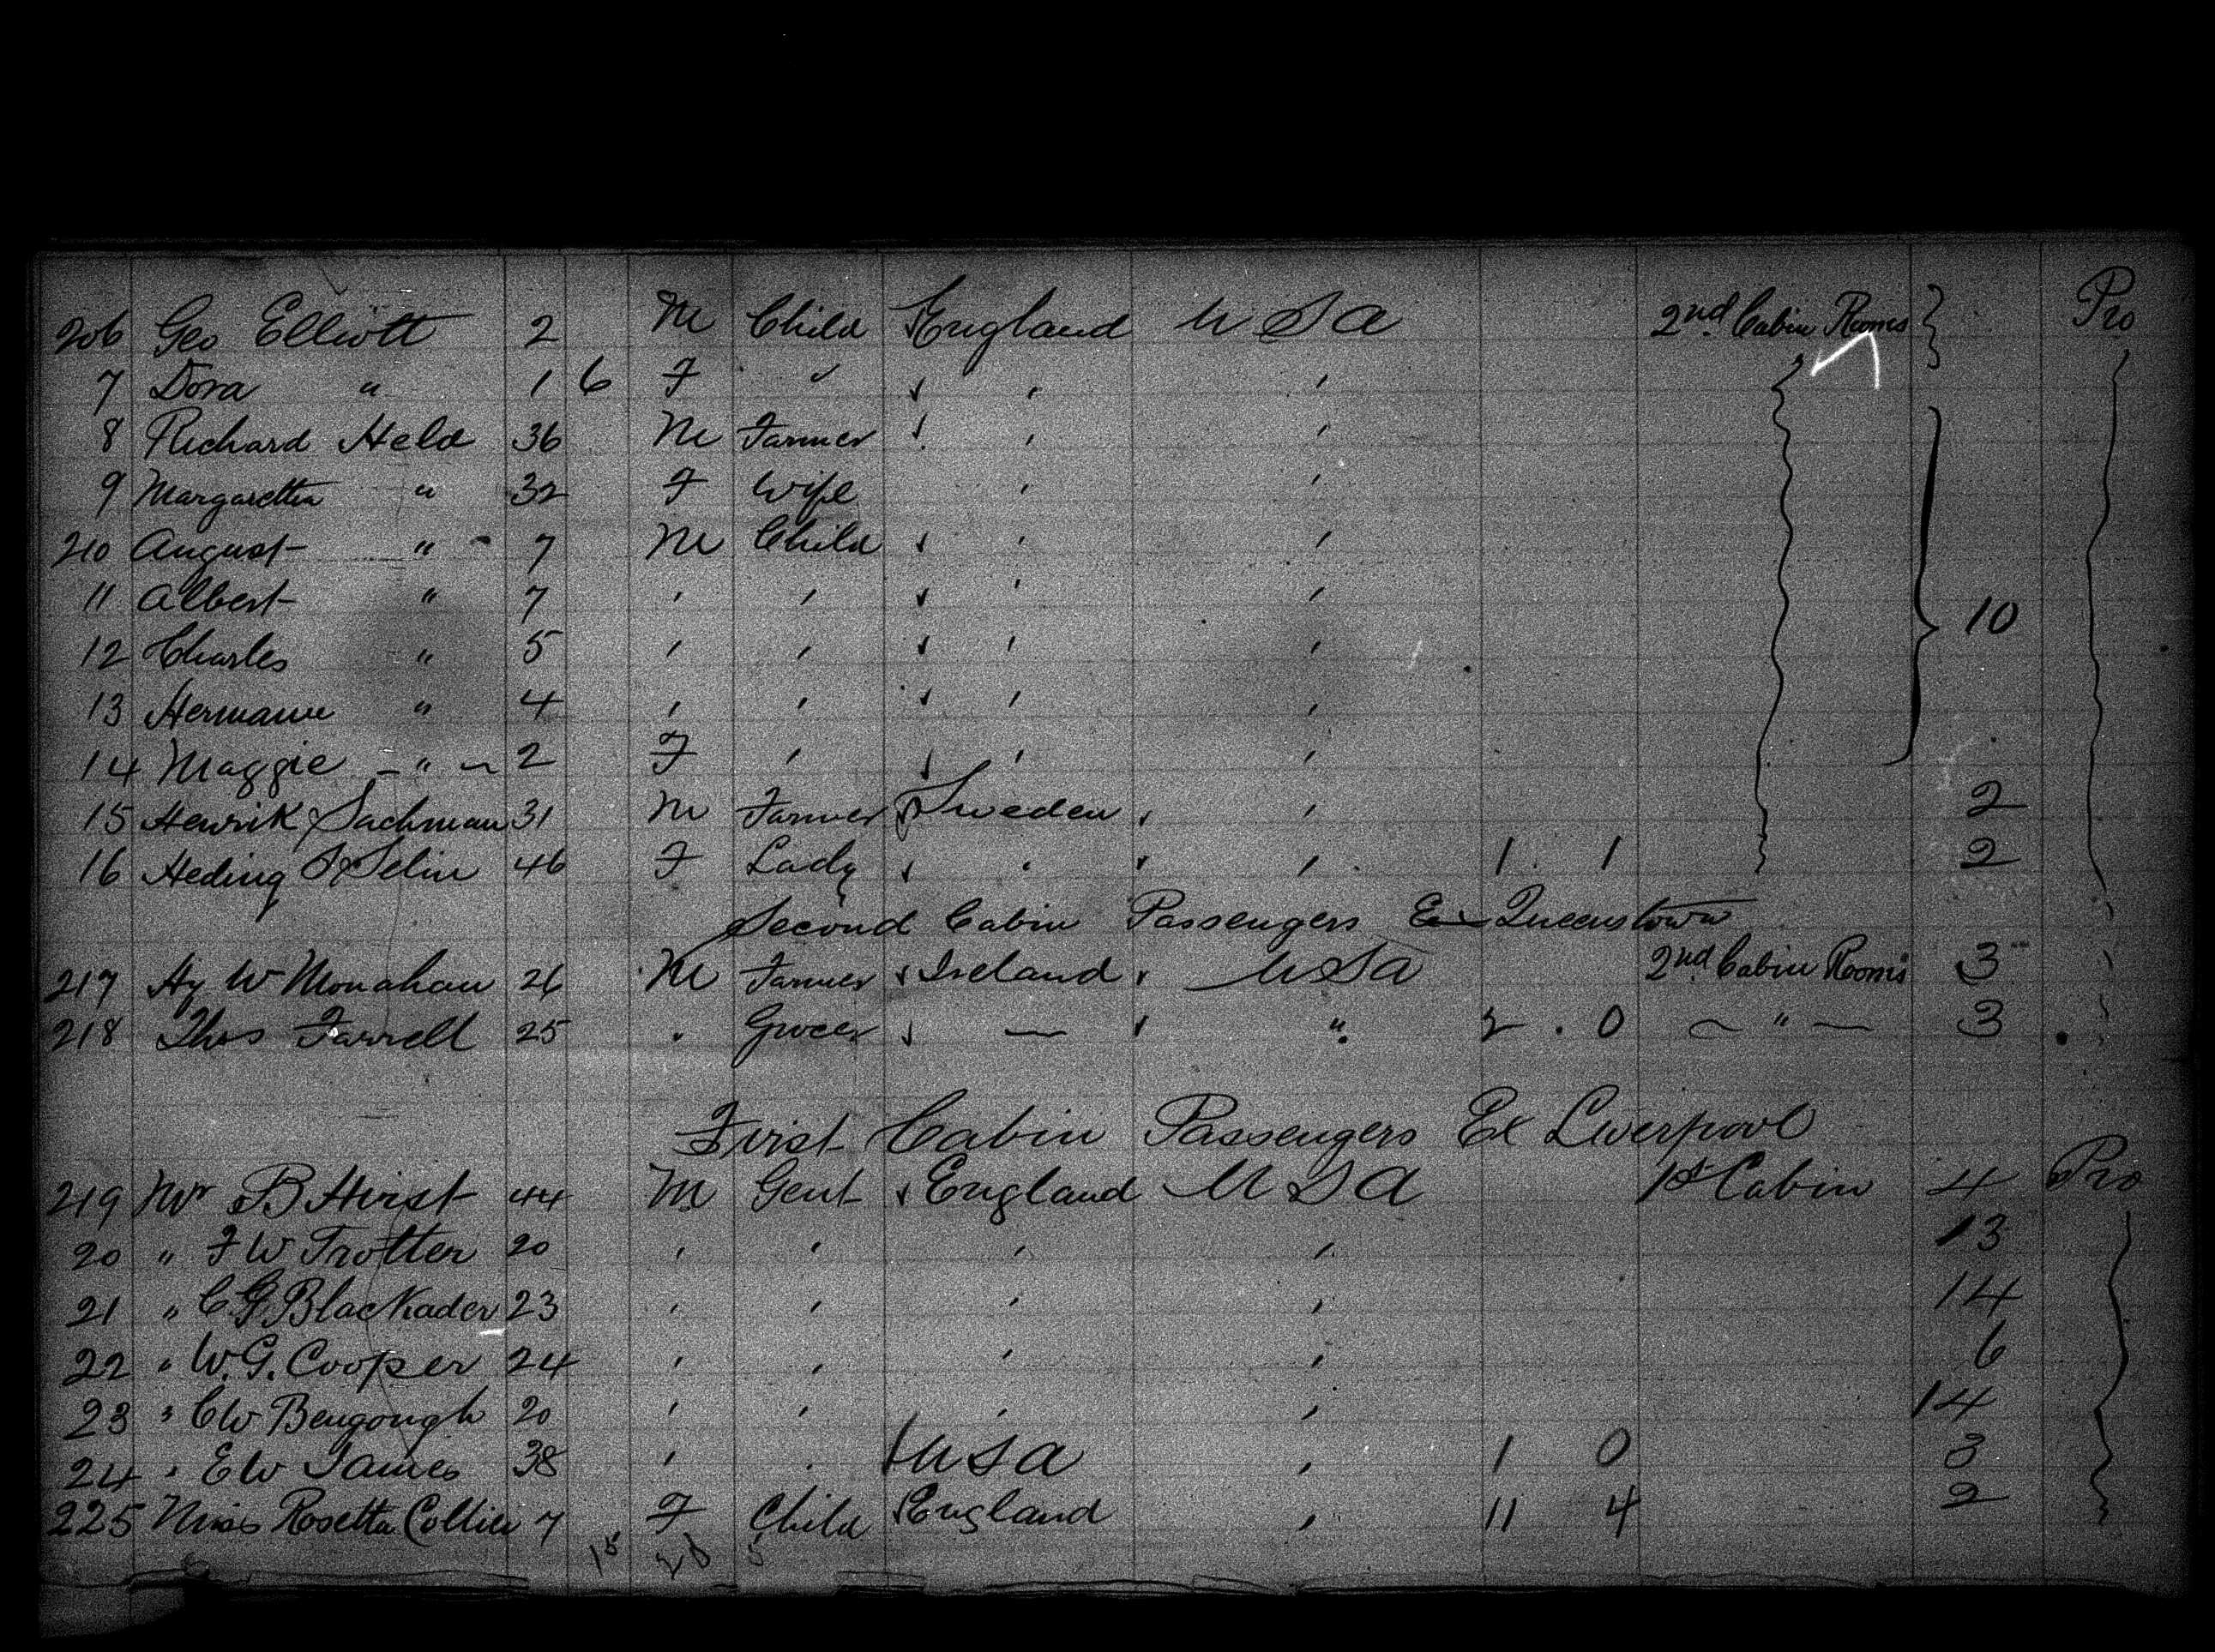 206 Geo Elliott 2 M Child England U S A 2nd Cabin Rooms Pro
7 Dora " 1 6 F "
8 Richard Held 36 M Farmer
9 Margaretha " 32 F Wife
210 August " 7 M Child
11 Albert " 7
12 Charles " 5
13 Hermann " 4
10
14 Maggie - " - 2 F
15 Henrik Sachman 31 M Farmer Sweden 2
16 Heding Selin 46 F Lady 1 1 2
Second Cabin Passengers Ex Queenstown
217 Hy W Monahan 26 M Farmer Ireland U S A 2nd Cabin Rooms 3
218 Thos Farrell 25 Grocer — " 2 . 0 — " — 3
First Cabin Passengers Ex Liverpool
219 Mr B Hirst 44 M Gent England U S A 1st Cabin 4 Pro
20 " F W Trotter 20 13
21 " C G Blackader 23 14
22 " W. G. Cooper 24 6
23 " C W Bengough 20 14
24 " E W James 38 U S A 1 0 3
225 Miss Rosetta Collier 7 F Child England 11 4 2